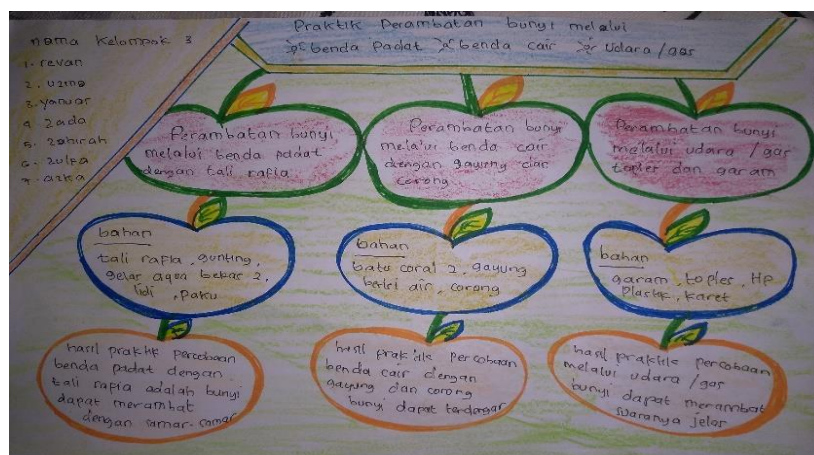 Praktik Perambatan bunyi melalui
benda Padat benda cair udara/gas
nama Kelompok 3
1. revan
2. uzma
3. yanuar
4. zada
5. zahirah
6. zulfa
7. azka
Perambatan bunyi
melalui benda padat
dengan tali rafia
Perambatan bunyi
melalui benda cair
dengan gayung dan
corong
Perambatan bunyi
melalui udara / gas
toples dan garam
bahan
tali rafia, gunting,
gelas aqua bekas 2,
lidi, Paku
bahan
batu coral 2, gayung
berisi air, corong
bahan
garam, toples, Hp
Plastik, karet
hasil praktik percobaan
benda padat dengan
tali rapia adalah bunyi
dapat merambat
dengan samar-samar
hasil praktik Percobaan
benda cair dengan
gayung dan corong
bunyi dapat terdengar
hasil praktik percobaan
melalui udara / gas
bunyi dapat merambat
suaranya jelas